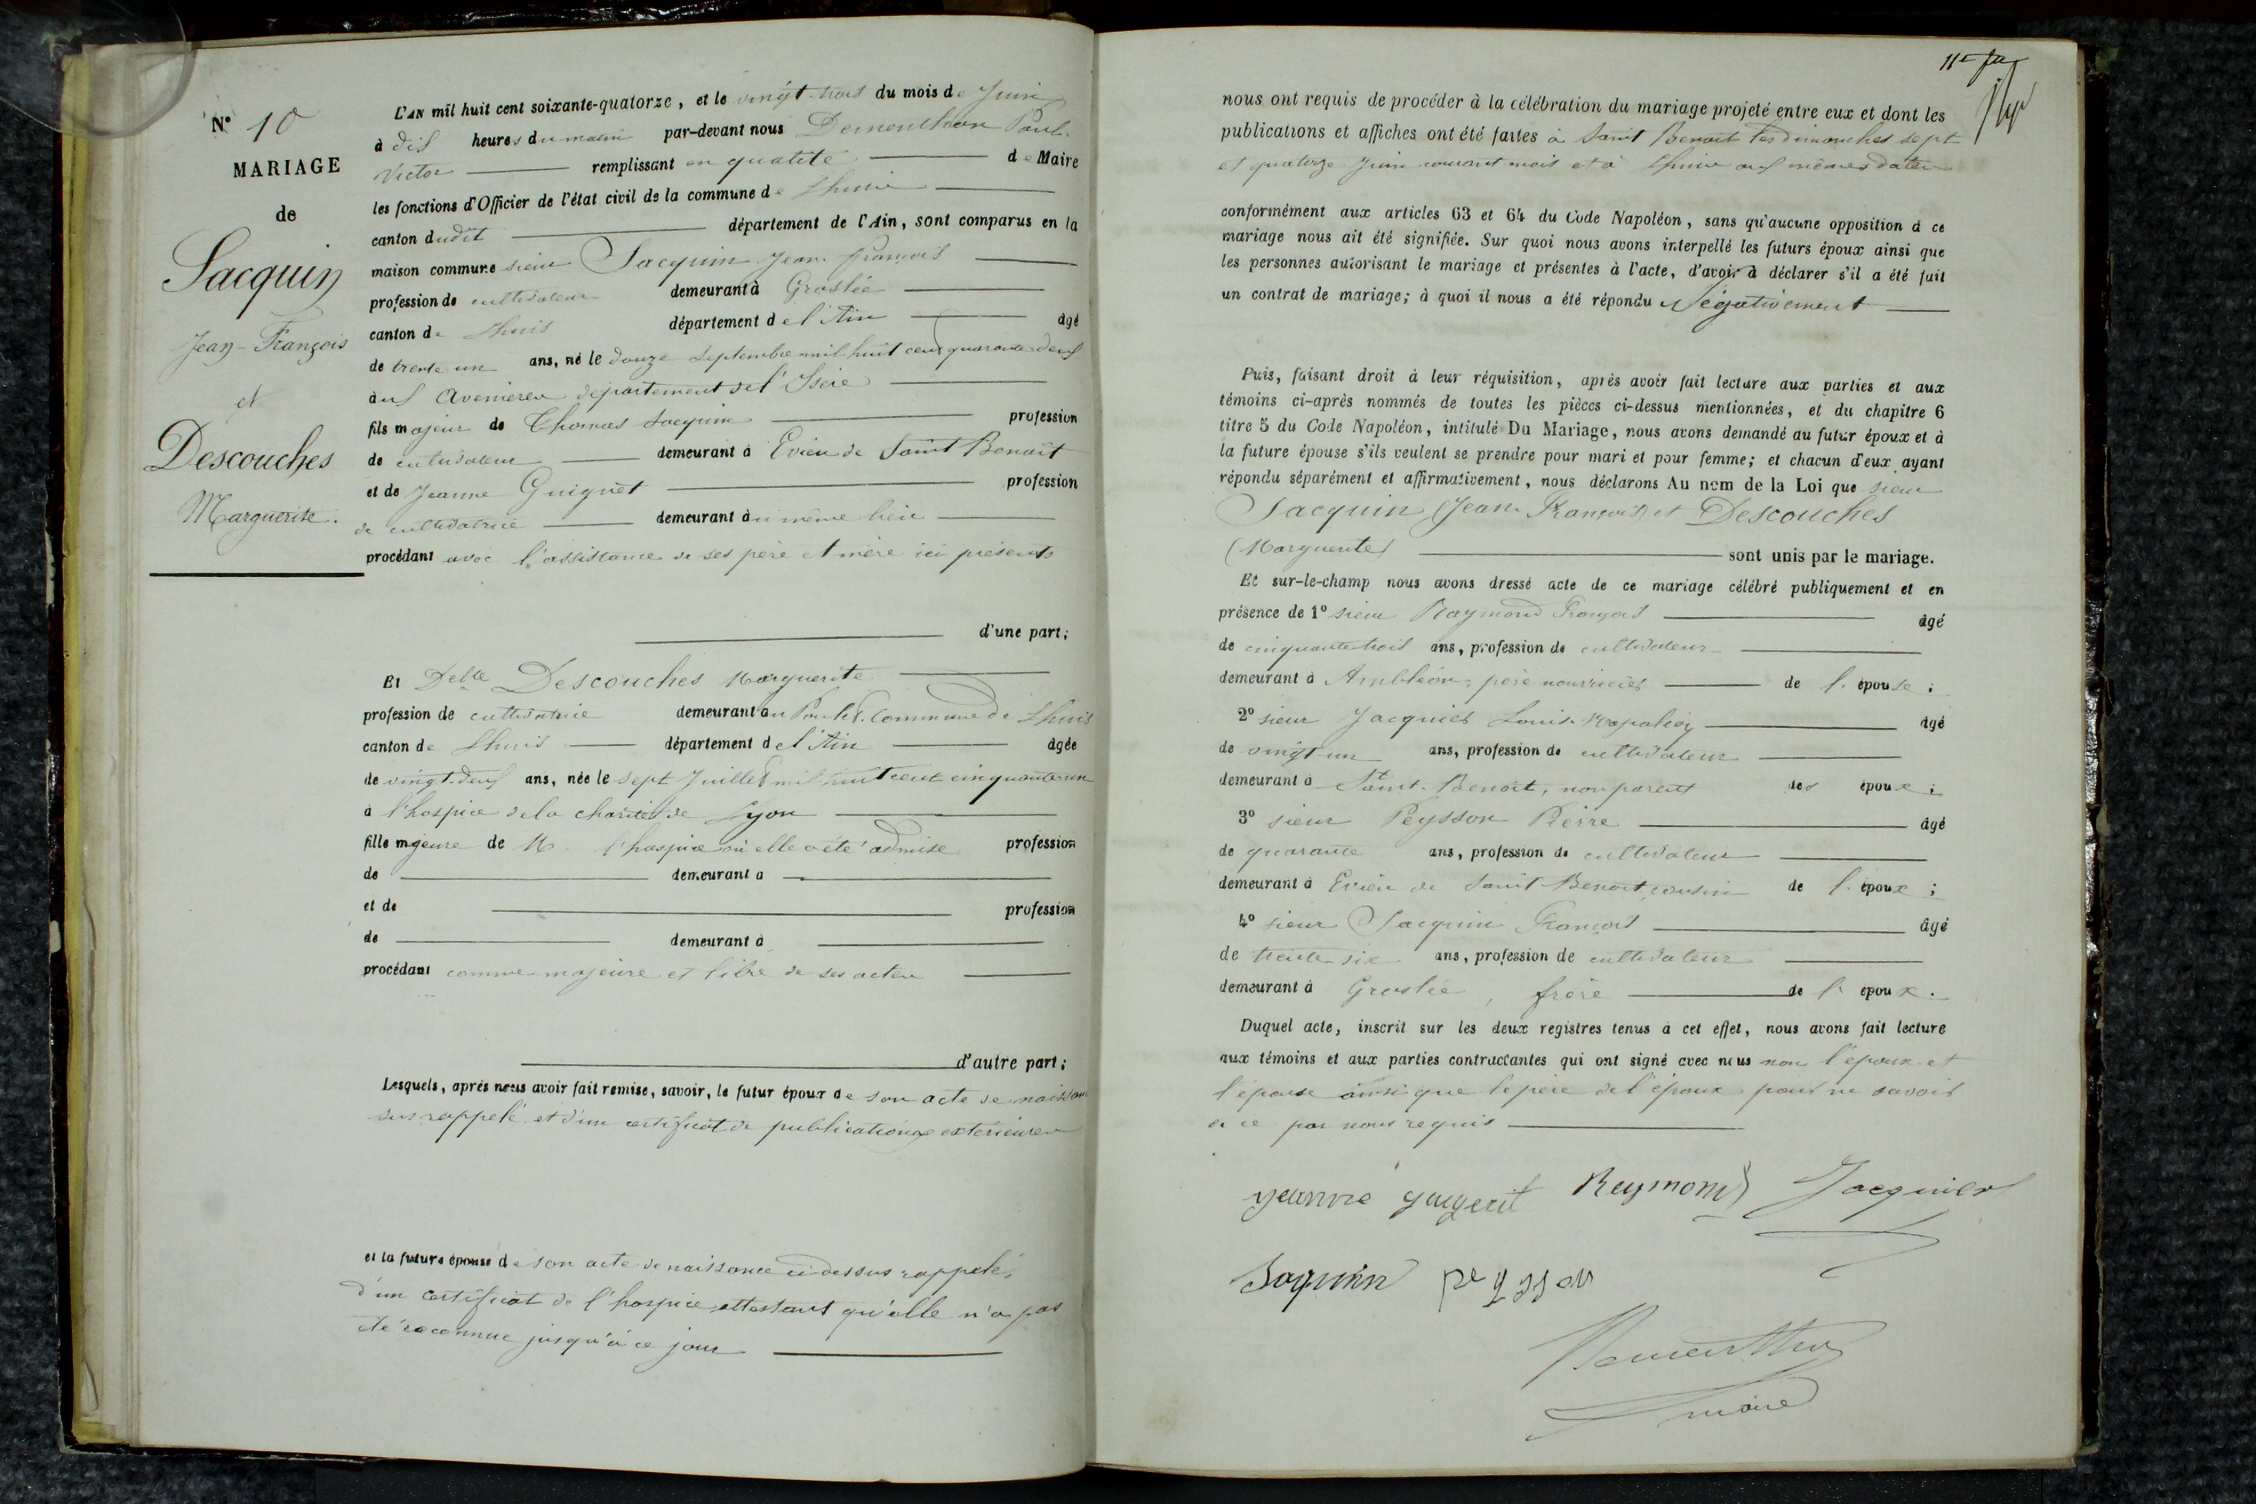 N° 10
MARIAGE
de
Sacquin
Jean-François
et
Descouches
Marguerite.
L'AN mil huit cent soixante-quatorze, et le vingt-trois du mois de Juin
à dix heures du matin par-devant nous Dementhon Paul-
Victor remplissant en qualité de Maire
les fonctions d'Officier de l'état civil de la commune de Lhuis
canton dudit département de l'Ain, sont comparus en la
maison commune sieur Sacquin Jean François
profession de cultivateur demeurant à Groslée
canton de Lhuis département de l'Ain âgé
de trente un ans, né le douze Septembre mil huit cent quarante deux
aux Avenières département de l'Isère
fils majeur de Thomas Sacquin profession
de cultivateur demeurant à Evieu de Saint Benoit
et de Jeanne Guiguet profession
de cultivatrice demeurant au même lieu
procédant avec l'assistance de ses père et mère ici présents
d'une part;
Et Delle Descouches Marguerite
profession de cultivatrice demeurant au Poulet commune de Lhuis
canton de Lhuis département de l'Ain âgée
de vingt-deux ans, née le sept Juillet mil huit cent cinquante-un
à l'hospice de la charité de Lyon
fille majeure de l'hospice où elle a été admise profession
de demeurant à
et de profession
de demeurant à
procédant comme majeure et libre de ses actes
d'autre part;
Lesquels, après nous avoir fait remise, savoir, le futur époux de son acte de naissance
sus rappelé et d'un certificat de publications extérieures
et la future épouse de son acte de naissance ci-dessus rappelé,
d'un certificat de l'hospice attestant qu'elle n'a pas
été reconnue jusqu'à ce jour
nous ont requis de procéder à la célébration du mariage projeté entre eux et dont les
publications et affiches ont été faites à Saint Benoit les dimanches sept
et quatorze Juin courant mois et à Lhuis aux mêmes dates
conformément aux articles 63 et 64 du Code Napoléon, sans qu'aucune opposition à ce
mariage nous ait été signifiée. Sur quoi nous avons interpellé les futurs époux ainsi que
les personnes autorisant le mariage et présentes à l'acte, d'avoir à déclarer s'il a été fait
un contrat de mariage; à quoi il nous a été répondu Négativement
Puis, faisant droit à leur réquisition, après avoir fait lecture aux parties et aux
témoins ci-après nommés de toutes les pièces ci-dessus mentionnées, et du chapitre 6
titre 5 du Code Napoléon, intitulé Du Mariage, nous avons demandé au futur époux et à
la future épouse s'ils veulent se prendre pour mari et pour femme; et chacun d'eux ayant
répondu séparément et affirmativement, nous déclarons Au nom de la Loi que sieur
Sacquin (Jean François) et Descouches
(Marguerite) sont unis par le mariage.
Et sur-le-champ nous avons dressé acte de ce mariage célébré publiquement et en
présence de 1° sieur Raymond François âgé
de cinquante-trois ans, profession de cultivateur
demeurant à Ambléon, père nourricier de l'épouse;
2° sieur Jacquier Louis-Napoléon âgé
de vingt-un ans, profession de cultivateur
demeurant à Saint-Benoit, non parent des époux;
3° sieur Peysson Pierre âgé
de quarante ans, profession de cultivateur
demeurant à Evieu de Saint Benoit, cousin de l'époux;
4° sieur Sacquin François âgé
de trente-six ans, profession de cultivateur
demeurant à Groslée, frère de l'époux.
Duquel acte, inscrit sur les deux registres tenus à cet effet, nous avons fait lecture
aux témoins et aux parties contractantes qui ont signé avec nous non l'époux et
l'épouse ainsi que le père de l'époux pour ne savoir
de ce par nous requis
Reymond Jacquier
Saquin peysson
Dementhon
maire